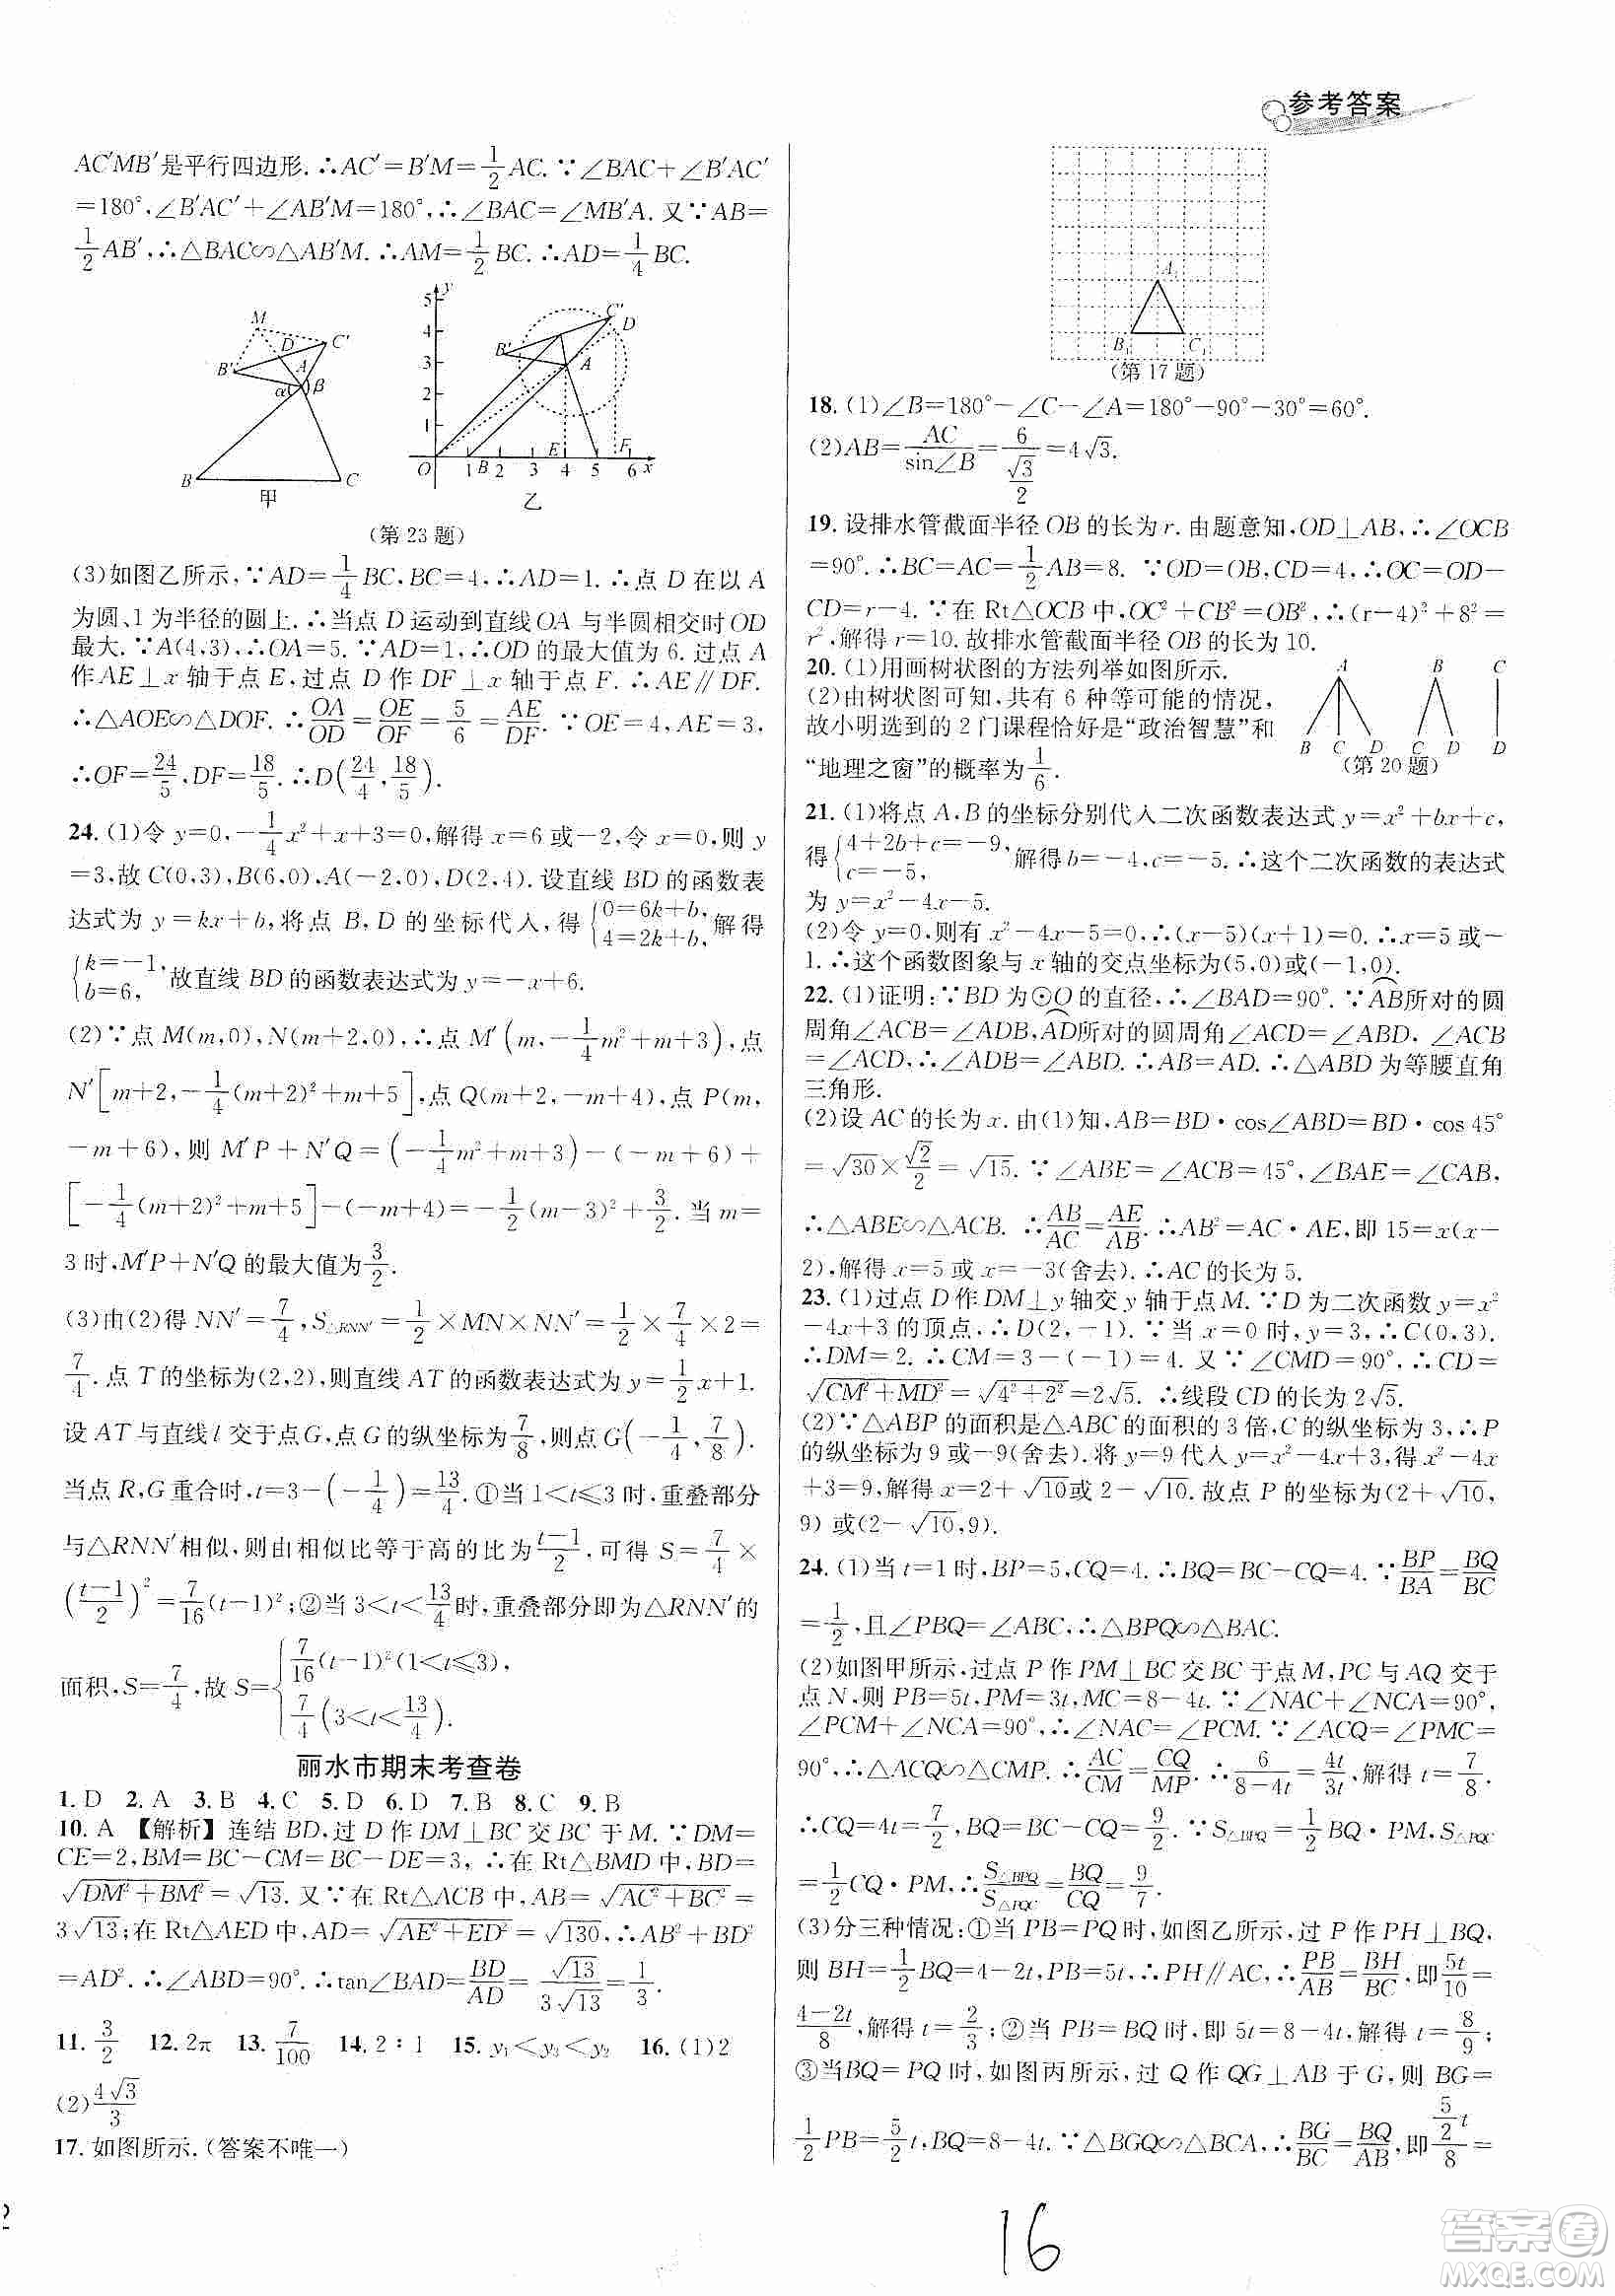 参考答案
AC′MB′是平行四边形.∴AC′=B′M=1/2AC.∵∠BAC+∠B′AC′
=180°,∠B′AC′+∠AB′M=180°,∴∠BAC=∠MB′A.又∵AB=
1/2AB′,∴△BAC∽△AB′M.∴AM=1/2BC.∴AD=1/4BC.
M D C′ B′ A α β B C 甲
y 5 4 3 2 1 C″ D B′ A O 1 B 2 3 E 4 5 F 6 x 乙
(第23题)
(3)如图乙所示,∵AD=1/4BC,BC=4,∴AD=1.∴点D在以A
为圆、1为半径的圆上.∴当点D运动到直线OA与半圆相交时OD
最大.∵A(4,3),∴OA=5.∵AD=1,∴OD的最大值为6.过点A
作AE⊥x轴于点E,过点D作DF⊥x轴于点F.∴AE∥DF.
∴△AOE∽△DOF.∴OA/OD=OE/OF=5/6=AE/DF.∵OE=4,AE=3,
∴OF=24/5,DF=18/5.∴D(24/4,18/5).
24.(1)令y=0,-1/4x²+x+3=0,解得x=6或-2,令x=0,则y
=3,故C(0,3),B(6,0),A(-2,0),D(2,4).设直线BD的函数表
达式为y=kx+b,将点B,D的坐标代入,得{0=6k+b,4=2k+b,解得
{k=-1,b=6,故直线BD的函数表达式为y=-x+6.
(2)∵点M(m,0),N(m+2,0),∴点M′(m,-1/4m²+m+3),点
N′[m+2,-1/4(m+2)²+m+5],点Q(m+2,-m+4),点P(m,
-m+6),则M′P+N′Q=(-1/4m²+m+3)-(-m+6)+
[-1/4(m+2)²+m+5]-(-m+4)=-1/2(m-3)²+3/2.当m=
3时,M′P+N′Q的最大值为3/2.
(3)由(2)得NN′=7/4,S△RNN′=1/2×MN×NN′=1/2×7/4×2=
7/4.点T的坐标为(2,2),则直线AT的函数表达式为y=1/2x+1.
设AT与直线l交于点G,点G的纵坐标为7/8,则点G(-1/4,7/8).
当点R,G重合时,t=3-(-1/4)=13/4.①当1<t≤3时,重叠部分
与△RNN′相似,则由相似比等于高的比为(t-1)/2,可得S=7/4×
((t-1)/2)²=7/16(t-1)²;②当3<t<13/4时,重叠部分即为△RNN′的
面积,S=7/4,故S={7/16(t-1)²(1<t≤3),7/4(3<t<13/4).
丽水市期末考查卷
1.D 2.A 3.B 4.C 5.D 6.D 7.B 8.C 9.B
10.A 【解析】连结BD,过D作DM⊥BC交BC于M.∵DM=
CE=2,BM=BC-CM=BC-DE=3,∴在Rt△BMD中,BD=
√(DM²+BM²)=√13.又∵在Rt△ACB中,AB=√(AC²+BC²)=
3√13;在Rt△AED中,AD=√(AE²+ED²)=√130,∴AB²+BD²
=AD².∴∠ABD=90°.∴tan∠BAD=BD/AD=√13/3√13=1/3.
11.3/2 12.2π 13.7/100 14.2∶1 15.y₁<y₃<y₂ 16.(1)2
(2)4√3/3
17.如图所示.(答案不唯一)
A₁ B₁ C₁
(第17题)
18.(1)∠B=180°-∠C-∠A=180°-90°-30°=60°.
(2)AB=AC/sin∠B=6/(√3/2)=4√3.
19.设排水管截面半径OB的长为r.由题意知,OD⊥AB,∴∠OCB
=90°.∴BC=AC=1/2AB=8.∵OD=OB,CD=4,∴OC=OD-
CD=r-4.∵在Rt△OCB中,OC²+CB²=OB²,∴(r-4)²+8²=
r²,解得r=10.故排水管截面半径OB的长为10.
20.(1)用画树状图的方法列举如图所示.
(2)由树状图可知,共有6种等可能的情况,
故小明选到的2门课程恰好是“政治智慧”和
“地理之窗”的概率为1/6.
A B C
B C D C D D
(第20题)
21.(1)将点A、B的坐标分别代入二次函数表达式y=x²+bx+c,
得{4+2b+c=-9,c=-5,解得b=-4,c=-5.∴这个二次函数的表达式
为y=x²-4x-5.
(2)令y=0,则有x²-4x-5=0,∴(x-5)(x+1)=0.∴x=5或-
1.∴这个函数图象与x轴的交点坐标为(5,0)或(-1,0).
22.(1)证明:∵BD为⊙O的直径,∴∠BAD=90°.∵AB所对的圆
周角∠ACB=∠ADB,AD所对的圆周角∠ACD=∠ABD.∠ACB
=∠ACD,∴∠ADB=∠ABD.∴AB=AD.∴△ABD为等腰直角
三角形.
(2)设AC的长为x.由(1)知,AB=BD·cos∠ABD=BD·cos45°
=√30×√2/2=√15.∵∠ABE=∠ACB=45°,∠BAE=∠CAB,
∴△ABE∽△ACB.∴AB/AC=AE/AB.∴AB²=AC·AE,即15=x(x-
2),解得x=5或x=-3(舍去).∴AC的长为5.
23.(1)过点D作DM⊥y轴交y轴于点M.∵D为二次函数y=x²
-4x+3的顶点,∴D(2,-1).∵当x=0时,y=3,∴C(0,3).
∴DM=2.∴CM=3-(-1)=4.又∵∠CMD=90°,∴CD=
√(CM²+MD²)=√(4²+2²)=2√5.∴线段CD的长为2√5.
(2)∵△ABP的面积是△ABC的面积的3倍,C的纵坐标为3,∴P
的纵坐标为9或-9(舍去).将y=9代入y=x²-4x+3,得x²-4x
+3=9,解得x=2+√10或2-√10.故点P的坐标为(2+√10,
9)或(2-√10,9).
24.(1)当t=1时,BP=5,CQ=4.∴BQ=BC-CQ=4.∵BP/BA=BQ/BC
=1/2,且∠PBQ=∠ABC,∴△BPQ∽△BAC.
(2)如图甲所示,过点P作PM⊥BC交BC于点M,PC与AQ交于
点N,则PB=5t,PM=3t,MC=8-4t.∵∠NAC+∠NCA=90°,
∠PCM+∠NCA=90°,∴∠NAC=∠PCM.∵∠ACQ=∠PMC=
90°,∴△ACQ∽△CMP.∴AC/CM=CQ/MP.∴6/(8-4t)=4t/3t,解得t=7/8.
∴CQ=4t=7/2,BQ=BC-CQ=9/2.∵S△BPQ=1/2BQ·PM,S△PQC
=1/2CQ·PM,∴S△BPQ/S△PQC=BQ/CQ=9/7.
(3)分三种情况:①当PB=PQ时,如图乙所示,过P作PH⊥BQ,
则BH=1/2BQ=4-2t,PB=5t,∴PH∥AC,∴PB/AB=BH/BC,即5t/10=
(4-2t)/8,解得t=2/3;②当PB=BQ时,即5t=8-4t,解得t=8/9;
③当BQ=PQ时,如图丙所示,过Q作QG⊥AB于G,则BG=
1/2PB=5/2t,BQ=8-4t.∵△BGQ∽△BCA,∴BG/BC=BQ/AB,即(5/2)t/8=
16
答案圈
MXQE.COM